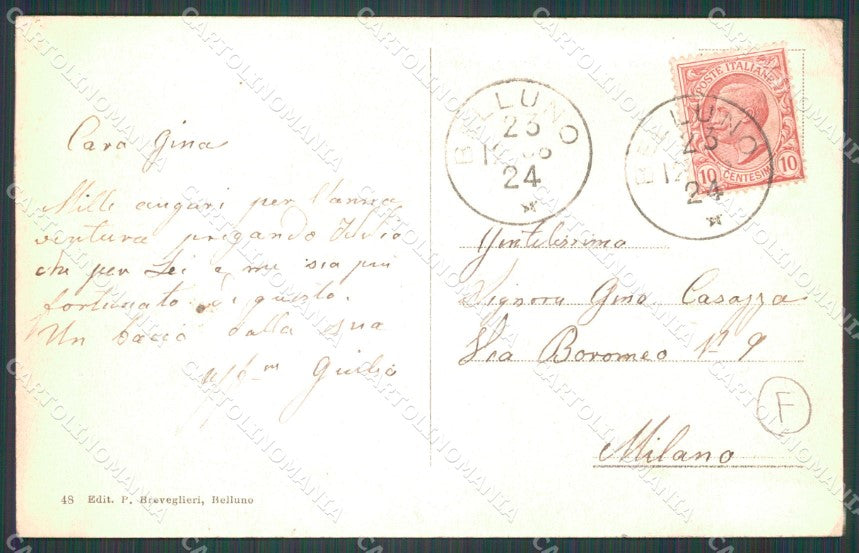 Cara Gina
Mille auguri per l'anno
venturo pregando Iddio
che per Lei e me sia più
fortunato di questo.
Un bacio dalla sua
Giulia
48 Edit. P. Breveglieri, Belluno
BELLUNO
23
24
BELLUNO
23
12
24
POSTE ITALIANE
10 CENTESIMI 10
Gentilissima
Signora Gina Casazza
Via Boromeo N° 9
Milano
F
CARTOLINOMANIA